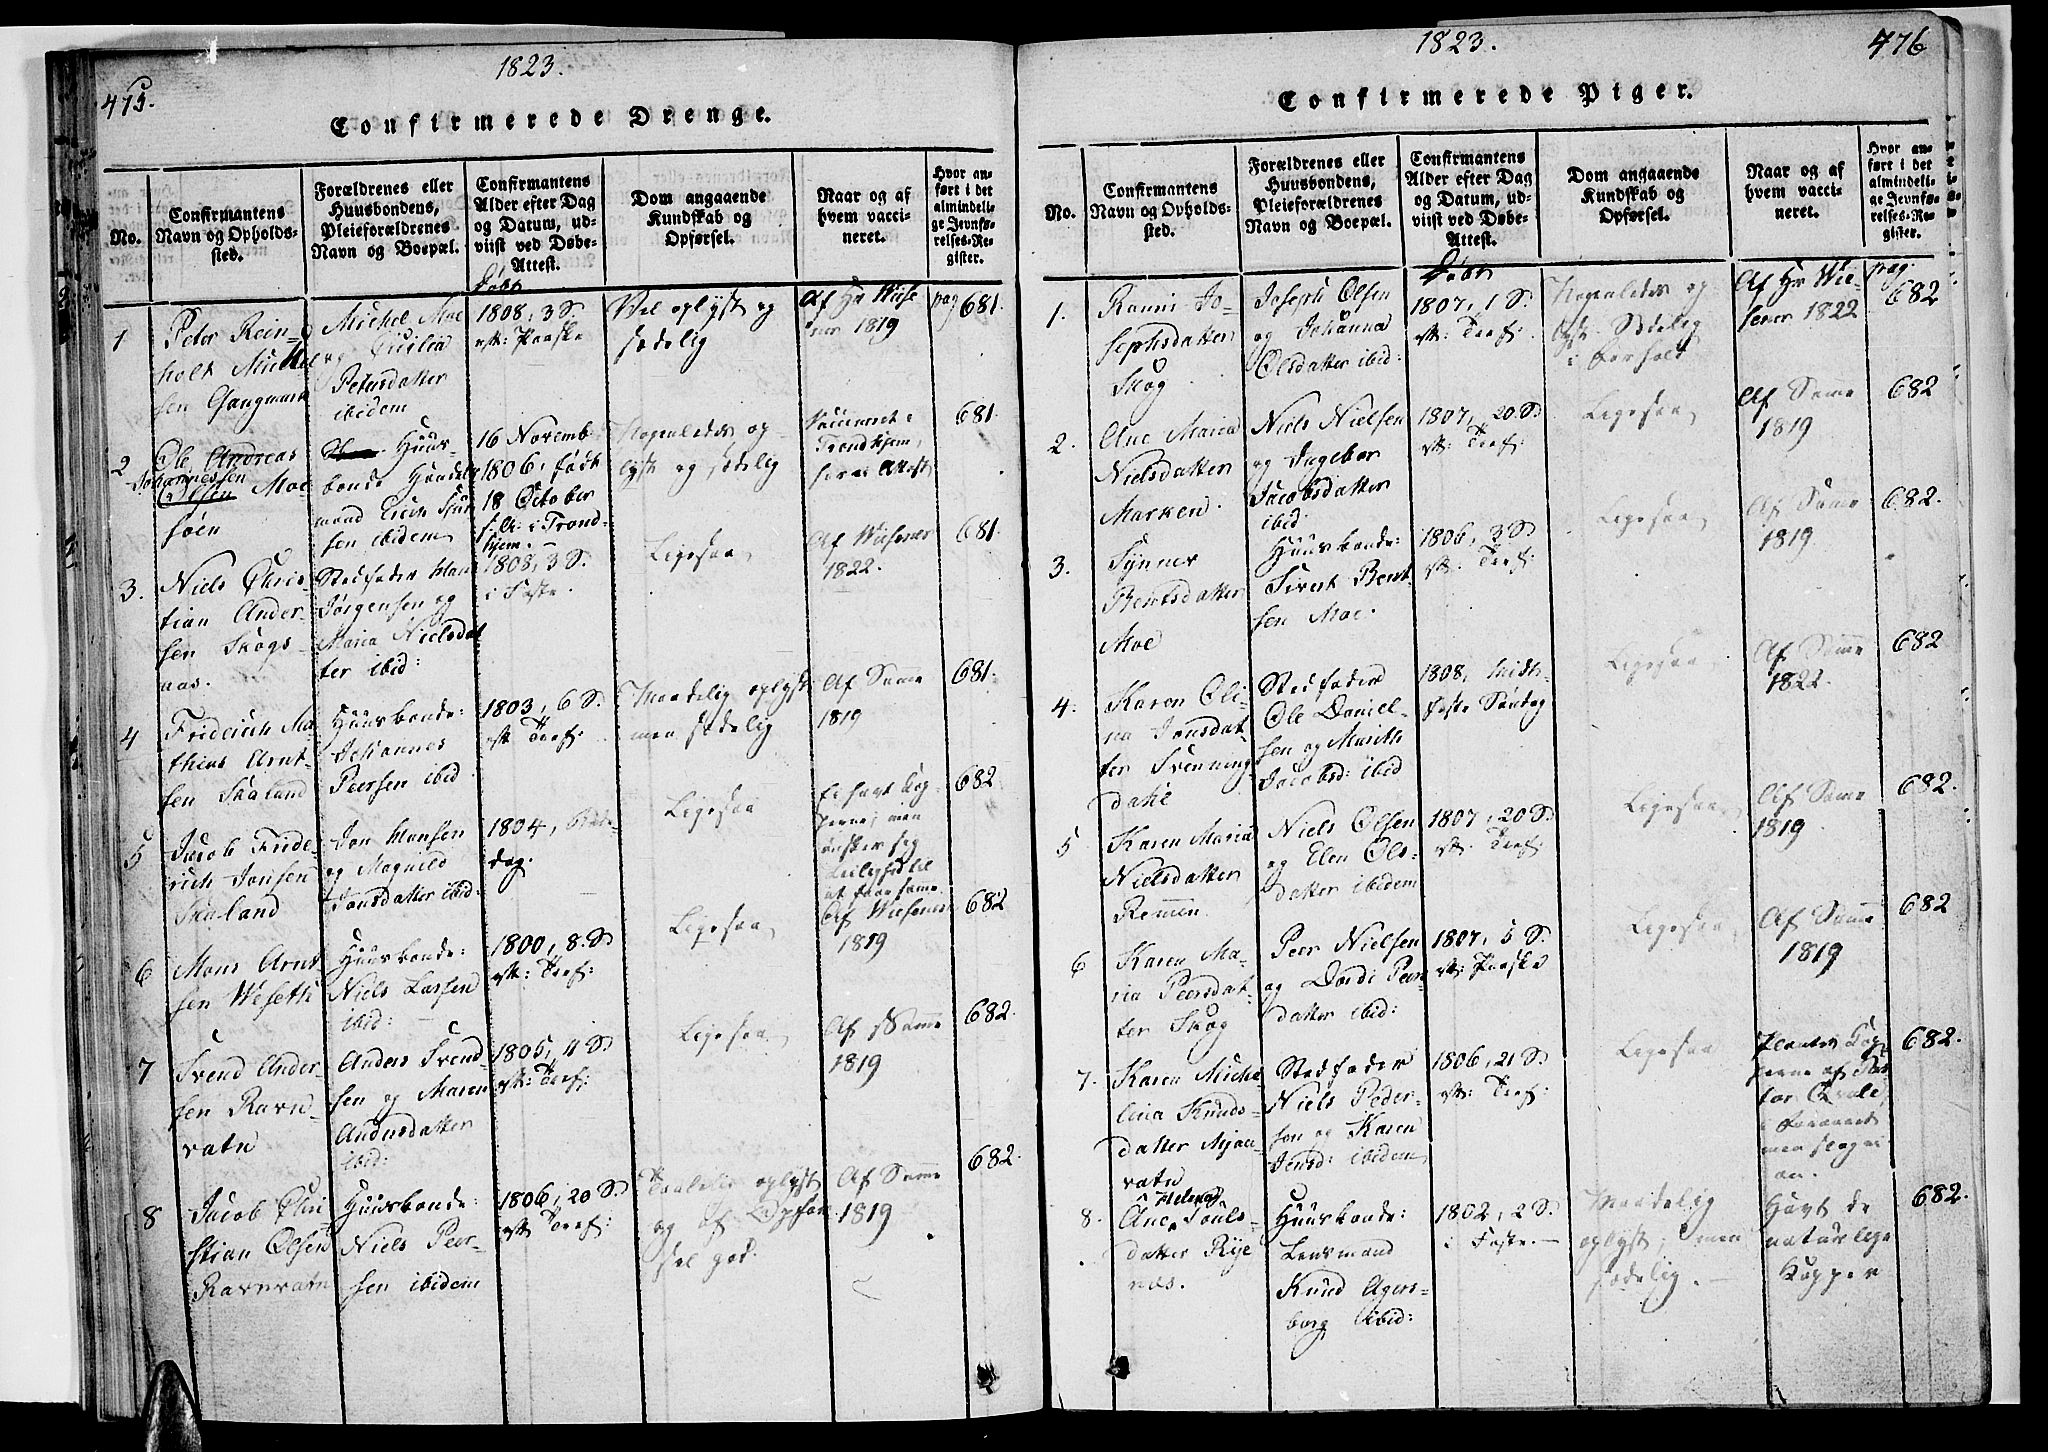 475.
1823.
Confirmerede Drenge.
No.
Confirmantens
Navn og Opholds-
sted.
Forældrenes eller
Huusbondens,
Pleieforældrenes
Navn og Boepæl.
Confirmantens
Alder efter Dag
og Datum, ud-
viist ved Døbe-
Attest.
Dom angaaende
Kundskab og
Opførsel.
Naar og af
hvem vacci-
neret.
Hvor an-
ført i det
almindeli-
ge Jevnfø-
relses-Re-
gister.
Døbt
1
Peter Rein-
holt Mickel
sen Gangmark
Michel Moe
og Cicilia
Petersdatter
ibidem
1808, 3 S.
eft: Paaske
Vel oplyst og
sædelig
Af Hr Wiese
ner 1819
pag 681.
2
Ole Andreas
Johannessen
Olsen Moe
søen
Huus-
bonde Handels
mand
sen ibidem
16 Novemb:
1806, født
18 October
s. A: i Trond-
hjem.
Nogenledes op-
lyst og sædelig
Vaccineret i
Trondhjem,
Attest
681.
3.
Niels Chris-
tian Ander-
sen Skogs-
aas.
Stedfader Hans
Jørgensen og
Maria Nielsdat
ter ibid:
1808, 3 S.
i Faste.
Ligesaa
Af Wiesener
1822.
681.
4
Friderich Ma-
thias Arnt-
sen Skaland
Huusbonde:
Johannes
Peersen ibid
1803, 6 S.
eft Tref:
Maadelig oplyst
men sædelig
Af Samme
1819
681.
5
Jacob Fride-
rich Jonsen
Skaland
Jon Hansen
og Magnild
Jonsdatter ibid:
1804,
dag.
Ligesaa
Ei havt Kop-
perne, men
ønsker seg
Leilighed til
at faae samme.
682
6
Mons Arnt
sen Wesetti
Huusbonde:
Niels Larsen
ibid:
1800, 8. S.
eft: Tref:
Ligesaa
Af Wiesener
1819
682
7
Svend Ander-
sen Ravn-
vatn
Anders Svend
sen og Maren
Andersdatter
ibid:
1805, 11 S.
eft: Tref:
Ligesaa
Af Samme
1819
682.
8
Jacob Chri
stian Olsen
Ravnvatn
Huusbonde:
Niels Peer-
sen ibidem
1806, 20 S.
eft Tref:
Taaleligt oplyst
og af Opfør
sel god.
Af Samme
1819
682.
1823.
476
Confirmerede Piger.
No.
Confirmantens
Navn og Opholds-
sted.
Forældrenes eller
Huusbondens,
Pleieforældrenes
Navn og Boepæl.
Confirmantens
Alder efter Dag
og Datum, ud-
viist ved Døbe-
Attest.
Dom angaaende
Kundskab og
Opførsel.
Naar og af
hvem vacci-
neret.
Hvor an-
ført i det
almindeli-
ge Jevnfø-
relses-Re-
gister.
Døbt
1.
Ranni Jo-
sephsdatter
Skog
Joseph Olsen
og Johanna
Olsdatter ibid:
1807, 1 S.
eft: Tref:
Nogenledes op
lyst. Sædelig
i Forhold
Af Hr Wie-
sener 1822
pag.
682
2.
Ane Maria
Nielsdatter
Marken.
Niels Nielsen
og Ingebor
Jacobsdatter
ibid:
1807, 20 S.
eft: Tref:
Ligesaa
Af Samme
1819
682
3.
Synner
Bentsdatter
Moe
Huusbonde:
Sivert Bent
sen Moe.
1806, 3 S.
eft: Tref:
Ligesaa
Af Samme
1819
682.
4.
Karen Oli-
na Jonsdat-
ter Svenning
dahl
Stedfader
Ole Daniel-
sen og Marith
Jacobsd: ibid
1808, Midt-
faste Søndag
Ligesaa
Af Samme
1822.
682
5
Karen Maria
Nielsdatter
Remmen.
Niels Olsen
og Elen Ols-
datter ibidem
1807, 20 S.
eft: Tref:
Ligesaa
Af Samme
1819
682.
6
Karen Ma-
ria Peersdat-
ter Skog
Peer Nielsen
og Dordi Peer
datter ibid:
1807, 5 S.
eft: Paaske
Ligesaa
Af Samme
1819
682
7.
Karen Miche
lina Knuds-
datter Mjaa
vatn
Stedfader
Niels Peder-
sen og Karen
Jensd: ibidem
1806, 21 S.
eft: Tref:
Ligesaa
Kop
perne af
tor Qvale
men slog ei
an.
682.
8.
Helena
Ane Pouls-
datter Rye
næs.
Huusbonde:
Lensmand
Knud Agers-
borg ibid:
1802, 2 S.
i Faste.
Maadelig
oplyst; men
sædelig.
Havt de
naturlige
Kopper
682.